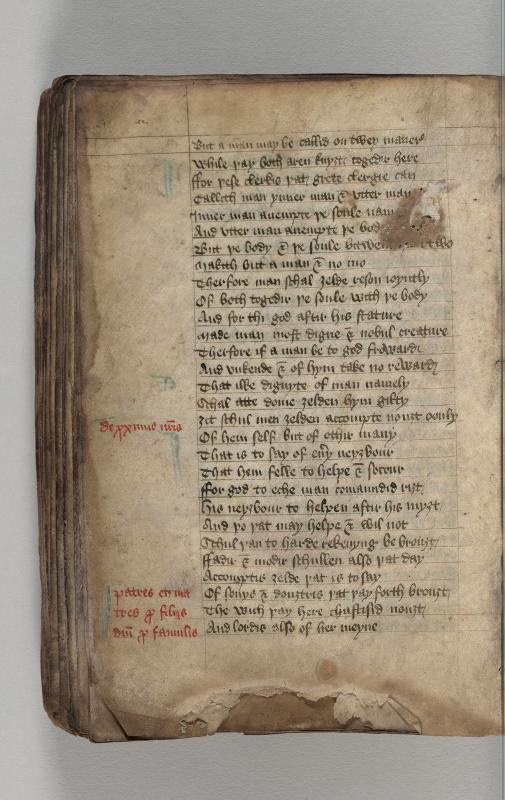 But a man may be callid on twey maner
While þay both aren knytt togedir here
ffor þese clerkis þat grete clergie can
Callith man ynner man & vtter man
Inner man anempte þe soule nam
And vtter man anempte þe bod
But þe body & þe soule bitwen two
Makith but a man & no mo
Therfore man schal ȝelde reson ioyntly
Of both togedir þe soule with þe body
And for thi god aftir his stature
Made man most digne & nobul creature
Therfore if a man be to god froward
And vnkende & of hym take no reward
That ilke dignyte of man namely
Schal atte dome ȝelden hym gilty
ȝit schul men ȝelden accompte nouȝt oonly
de proximo nostris
Of hem self but of othir many
That is to say of eny neyȝbour
That hem felle to helpe & socour
ffor god to eche man comaundid riȝt
His neyȝbour to helpen aftir his myȝt
And þo þat may helpe & wil not
Schul þan to harde rekenyng be brouȝt
ffadir & modir schullen also þat day
Accomptis ȝelde þat is to say
patres et ma
Of sonys & douȝtris þat þay forth brouȝt
tres pro filijs
The wich þay here chastisid nouȝt
dñi pro famulis
And lordis also of her meyne